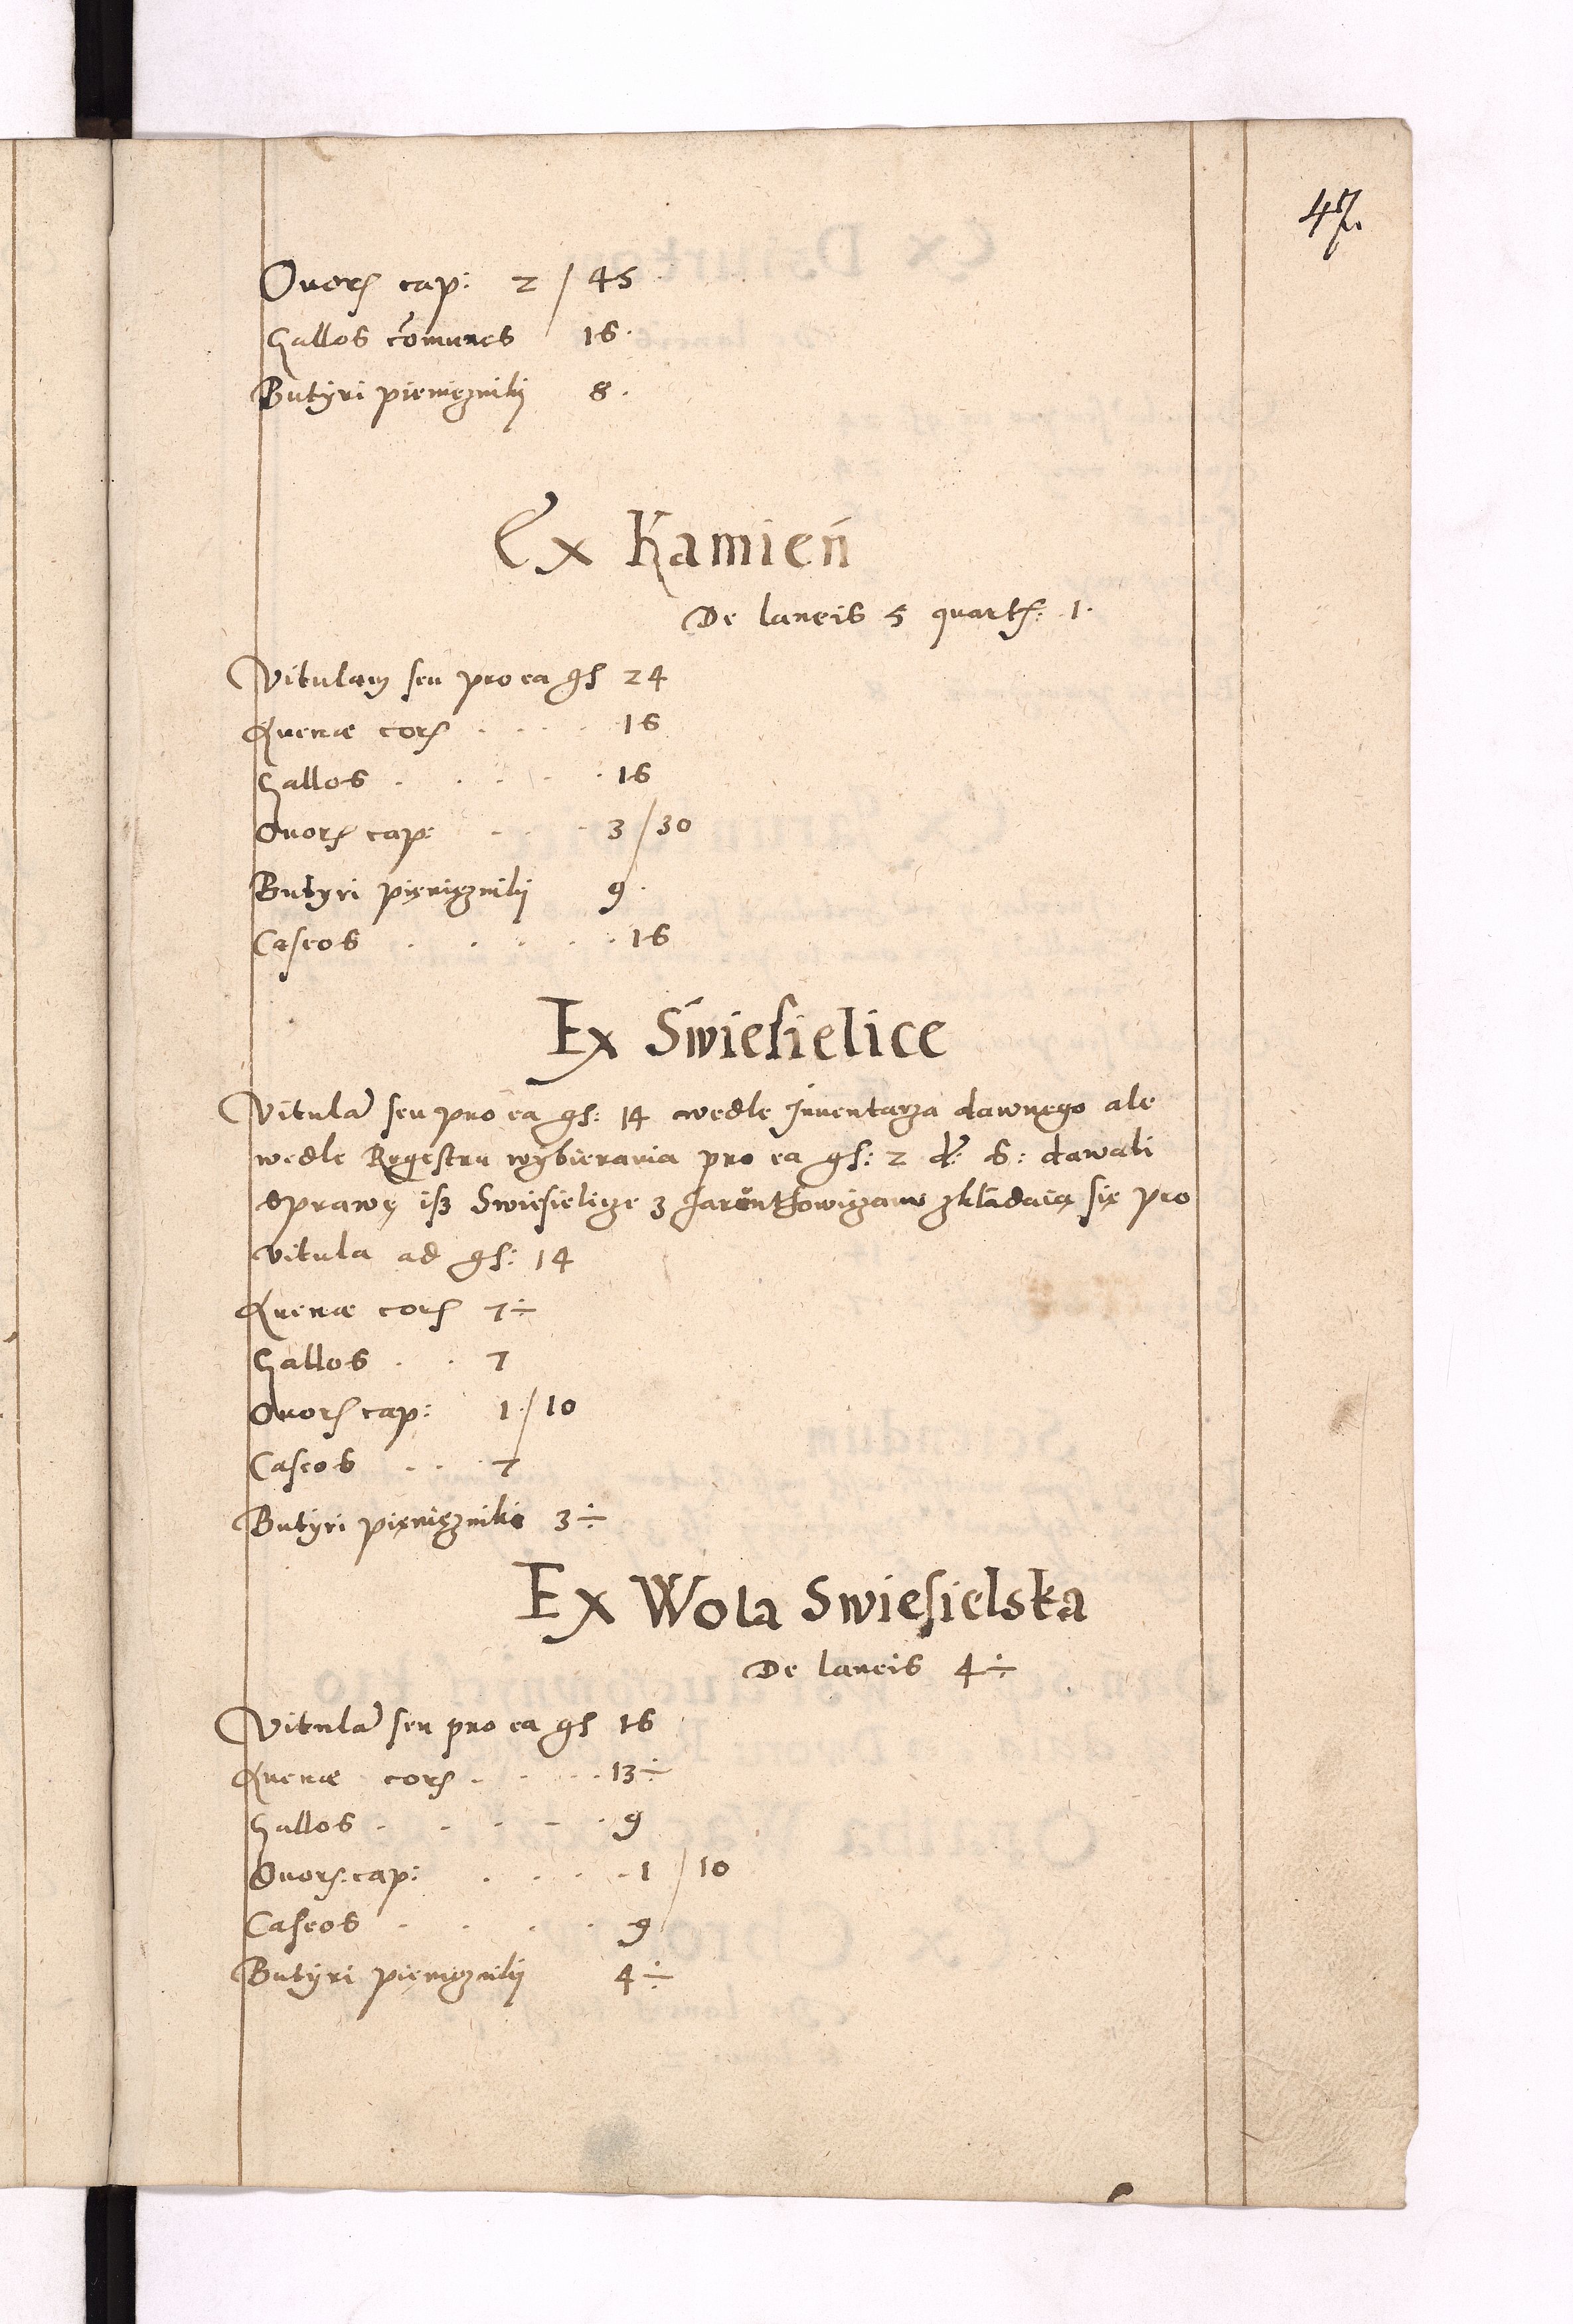 47.
Ouorʒ cap: 2 / 45
Gallos com̃unes 16.
Butÿri pienięznikÿ 8.
Ex Kamień
De laneis 5 quartʒ: 1.
Vitulam seu pro ea gʃ 24
Auenæ corʒ . . . . 16
Gallos . . . . . 16
Ouorʒ cap: . . . 3 / 30
Butyri pięnięznikÿ 9.
Caseos . . . . . 16
Ex Swiesielice
Vitula͂ seu pro ea gʃ: 14 wedle Inuentarza dawnego ale
wedle Regestru wÿbierania pro ea gʃ: 2 d: 6: dawali
sprawę isz Swiesielicze z Jaronthowiczami zkładaią się pro
vitula ad gʃ: 14
Auenæ corʒ 7 ÷
Gallos . . 7
Ouorʒ cap: 1 / 10
Caseos . . . 7
Butÿri pięnięzniki 3 ÷
Ex Wola Swiesielska
De laneis 4 ÷
Vitula͂ seu pro ea gʃ 16
Auenæ corʒ . . . . 13 ÷
Gallos . . . . . 9
Ouorʒ: cap: . . . . 1 / 10
Caseos . . . . 9
Butÿri pięnięznikÿ 4 ÷